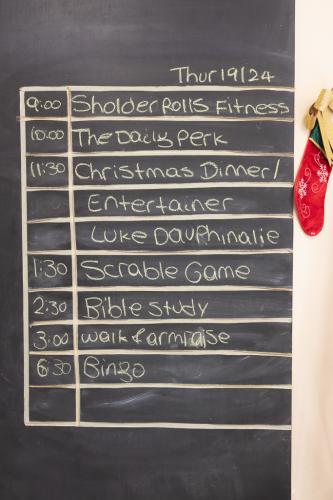 Thur 19/24
9:00 Sholder Rolls Fitness
10:00 The Daily Perk
11:30 Christmas Dinner/
Entertainer
Luke Dauphinalie
1:30 Scrable Game
2:30 Bible study
3:00 walk & armraise
6:30 Bingo